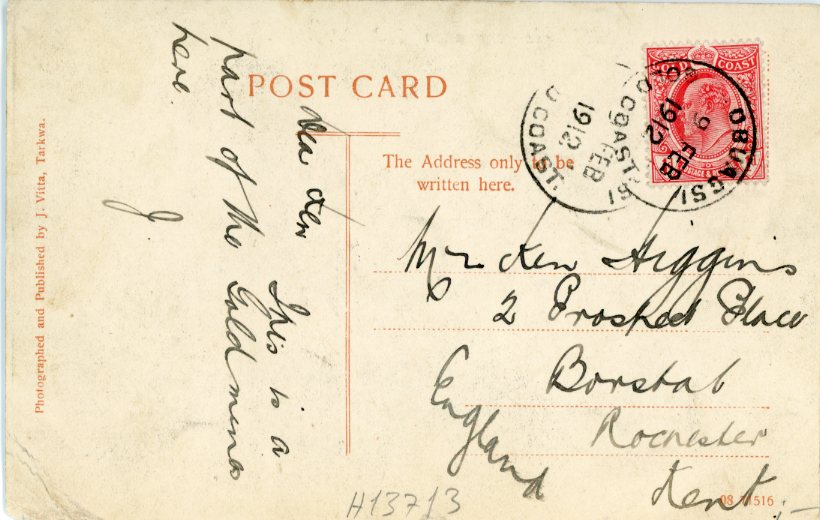 POST CARD
The Address only to be
written here.
Photographed and Published by J. Vitta, Tarkwa.
Dear Ken
This is a
part of the Gold mines
here.
J
GOLD COAST
POSTAGE &
OBUASSI
9 FEB
1912
GOLD COAST
FEB
1912
D COAST.
Mr Ken Higgins
2 Prospect Place
Borstal
Rochester
Kent
England
H13713
08 71516